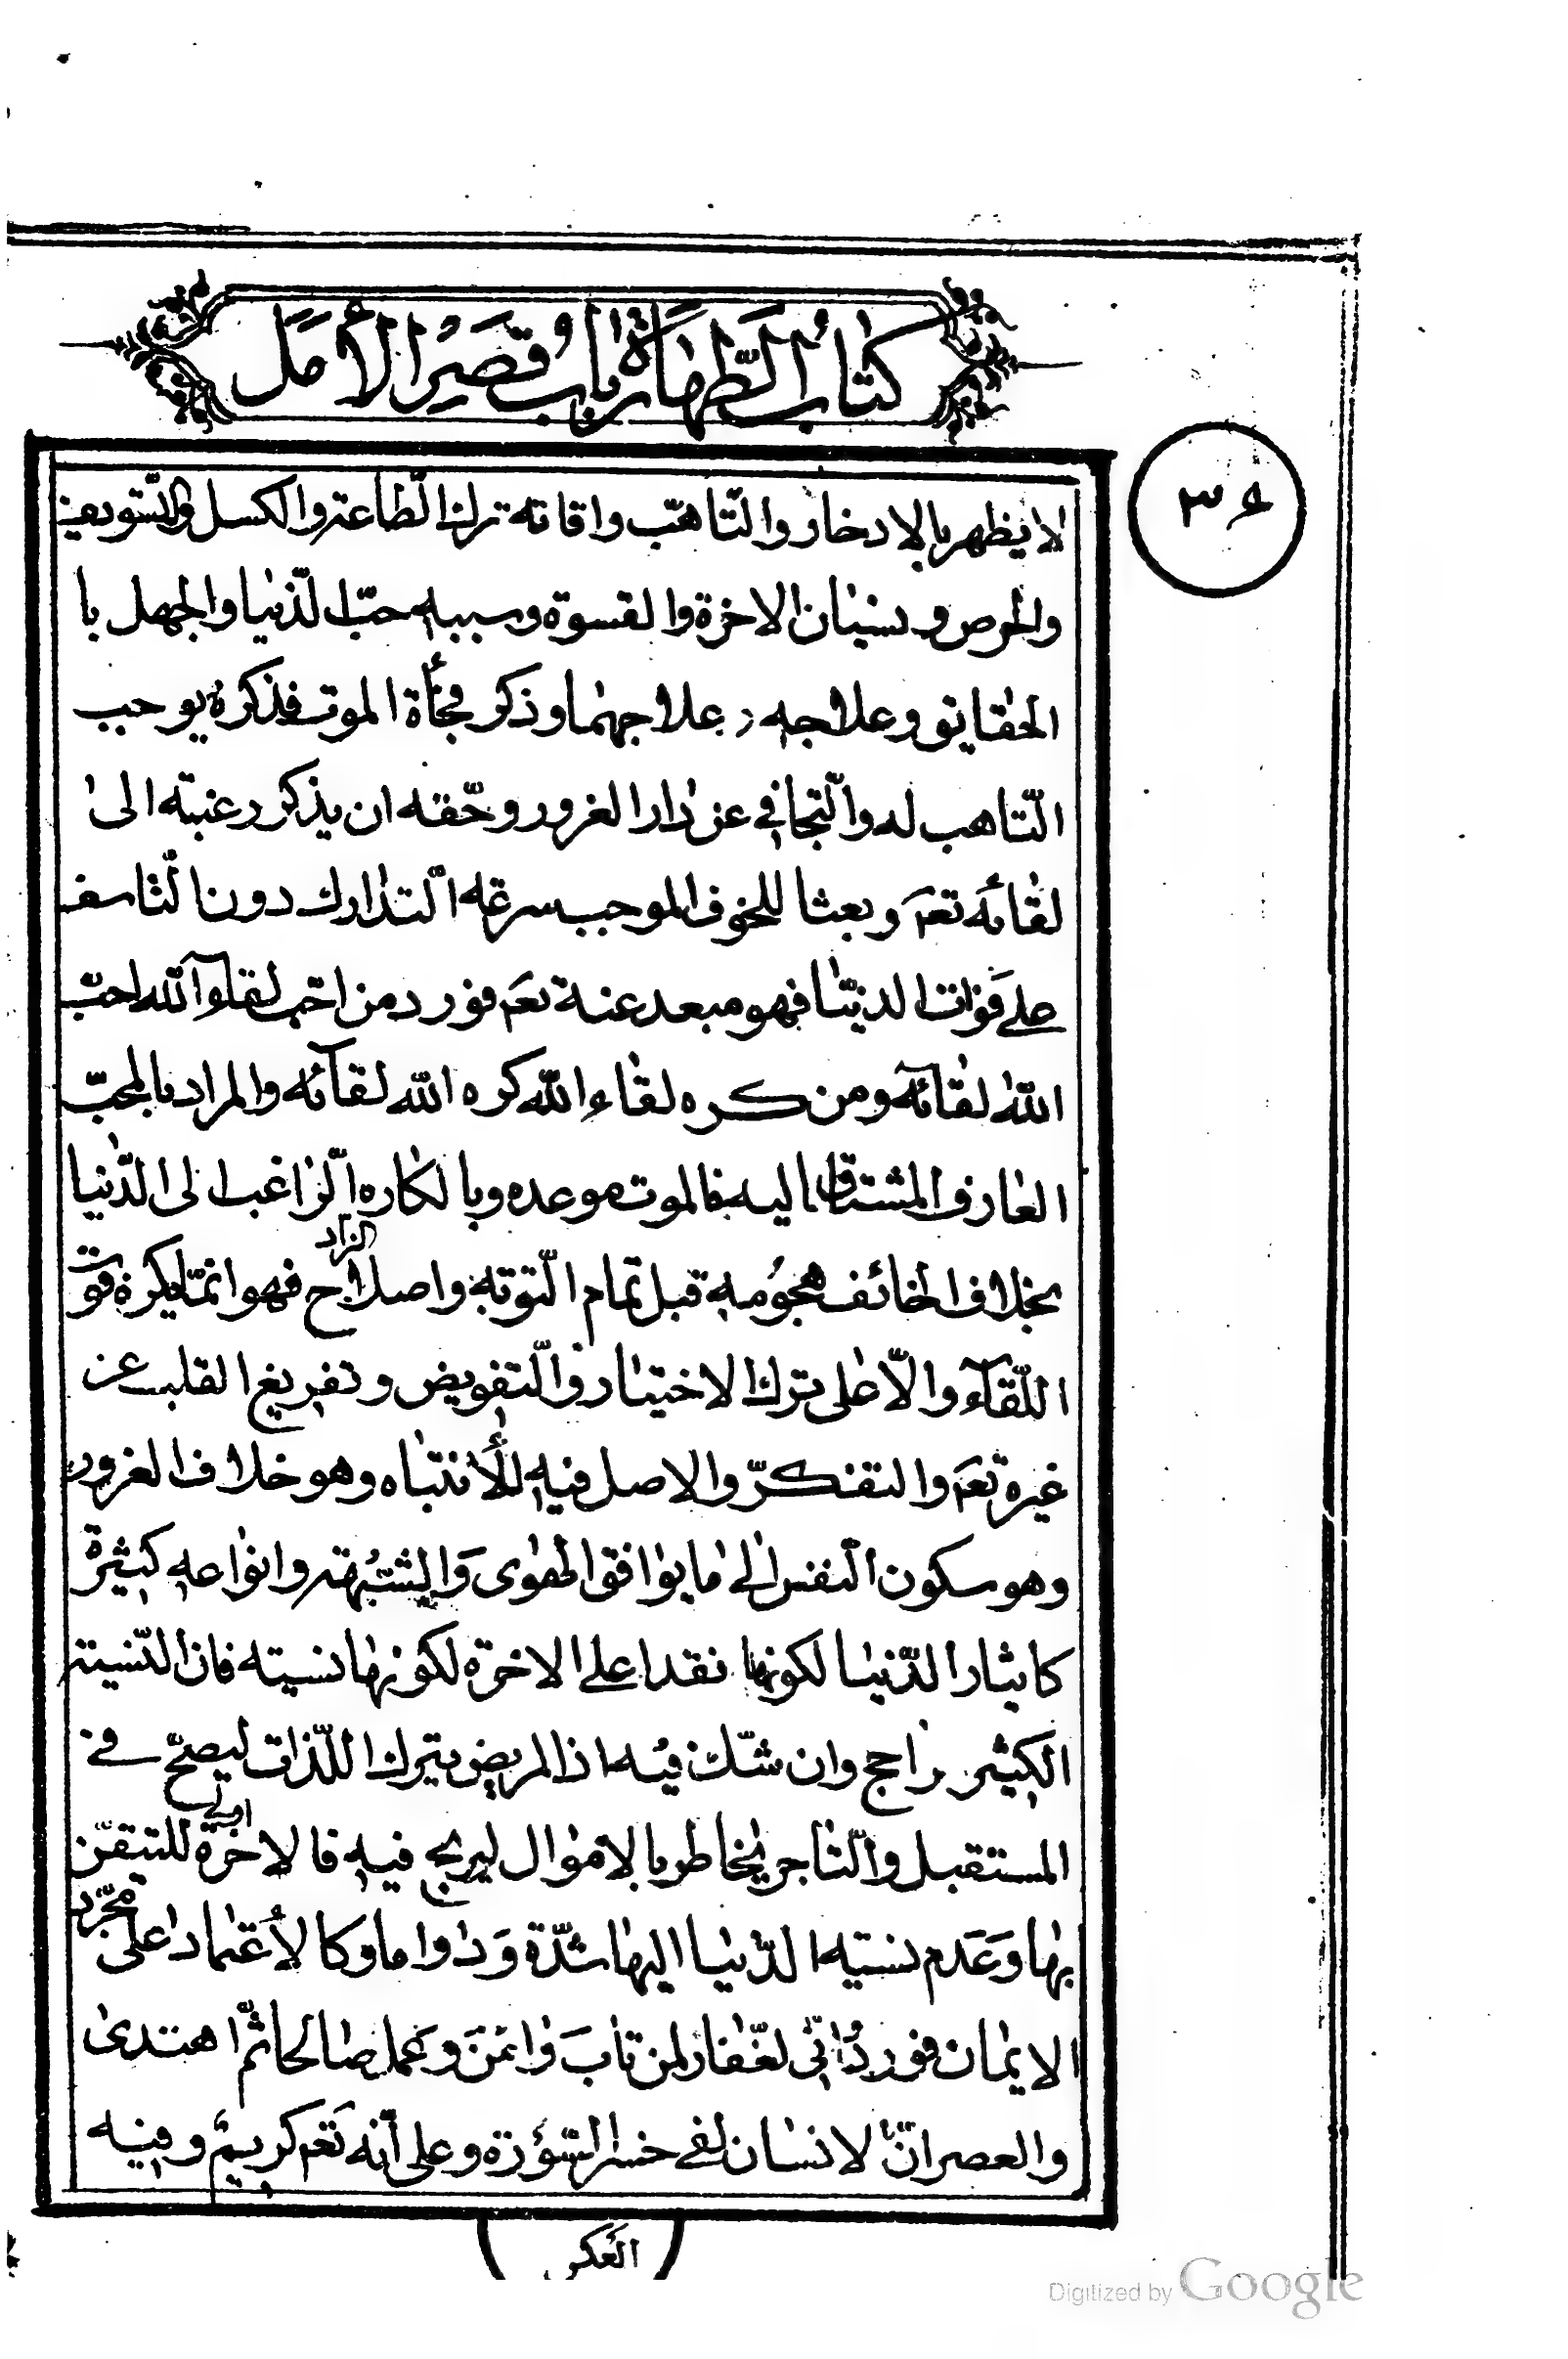 كتاب الطهارة باب قصر الأمل
٣٤
لا يظهر بالادخار والتاهب وافاته ترك الطاعة والكسل والتسويف
والحرص ونسيان الاخرة والقسوة وسببه حب الدنيا والجهل با
الحقايق وعلاجه علاجهما وذكر فجأة الموت فذكره يوجب
التاهب له والتجافي عن دار الغرور وحقه ان يذكر رغبة الى
لقائه تعم وبعثا للخوف الموجب سرعة التدارك دون التاسف
على فوات الدنيا فهو مبعد عنه تعم فورد من احب لقاء الله احب
الله لقائه ومن كره لقاء الله كره الله لقائه والمراد بالمحب
العارف المشتاق اليه فالموت موعده وبالكاره الراغب الى الدنيا
بخلاف الخائف هجومه قبل تمام التوبة واصلاح الزاد فهو انما يكره فوت
اللقاء والاعلى ترك الاختيار والتفويض وتفريغ القلب عن
غيره تعم والتفكر والاصل فيه الأنتباه وهو خلاف الغرور
وهو سكون النفس الى ما يوافق الهوى والشبهة وانواعه كثيرة
كايثار الدنيا لكونها نقدا على الاخرة لكونها نسية فان النسية
الكثير راجح وان شك فيه اذ المريض يترك اللذات ليصح في
المستقبل والتاجر يخاطر بالاموال ليربح فيه فالاخرة اولى للتيقن
بها وعدم نسبة الدنيا اليها شدة ودواما وكالأعتماد على مجرد
الايمان فورد اني لغفار لمن تاب وامن وعمل صالحا ثم اهتدى
والعصر ان الانسان لفي خسر السورة وعلى انه تعم كريم وفيه
Digitized by Google